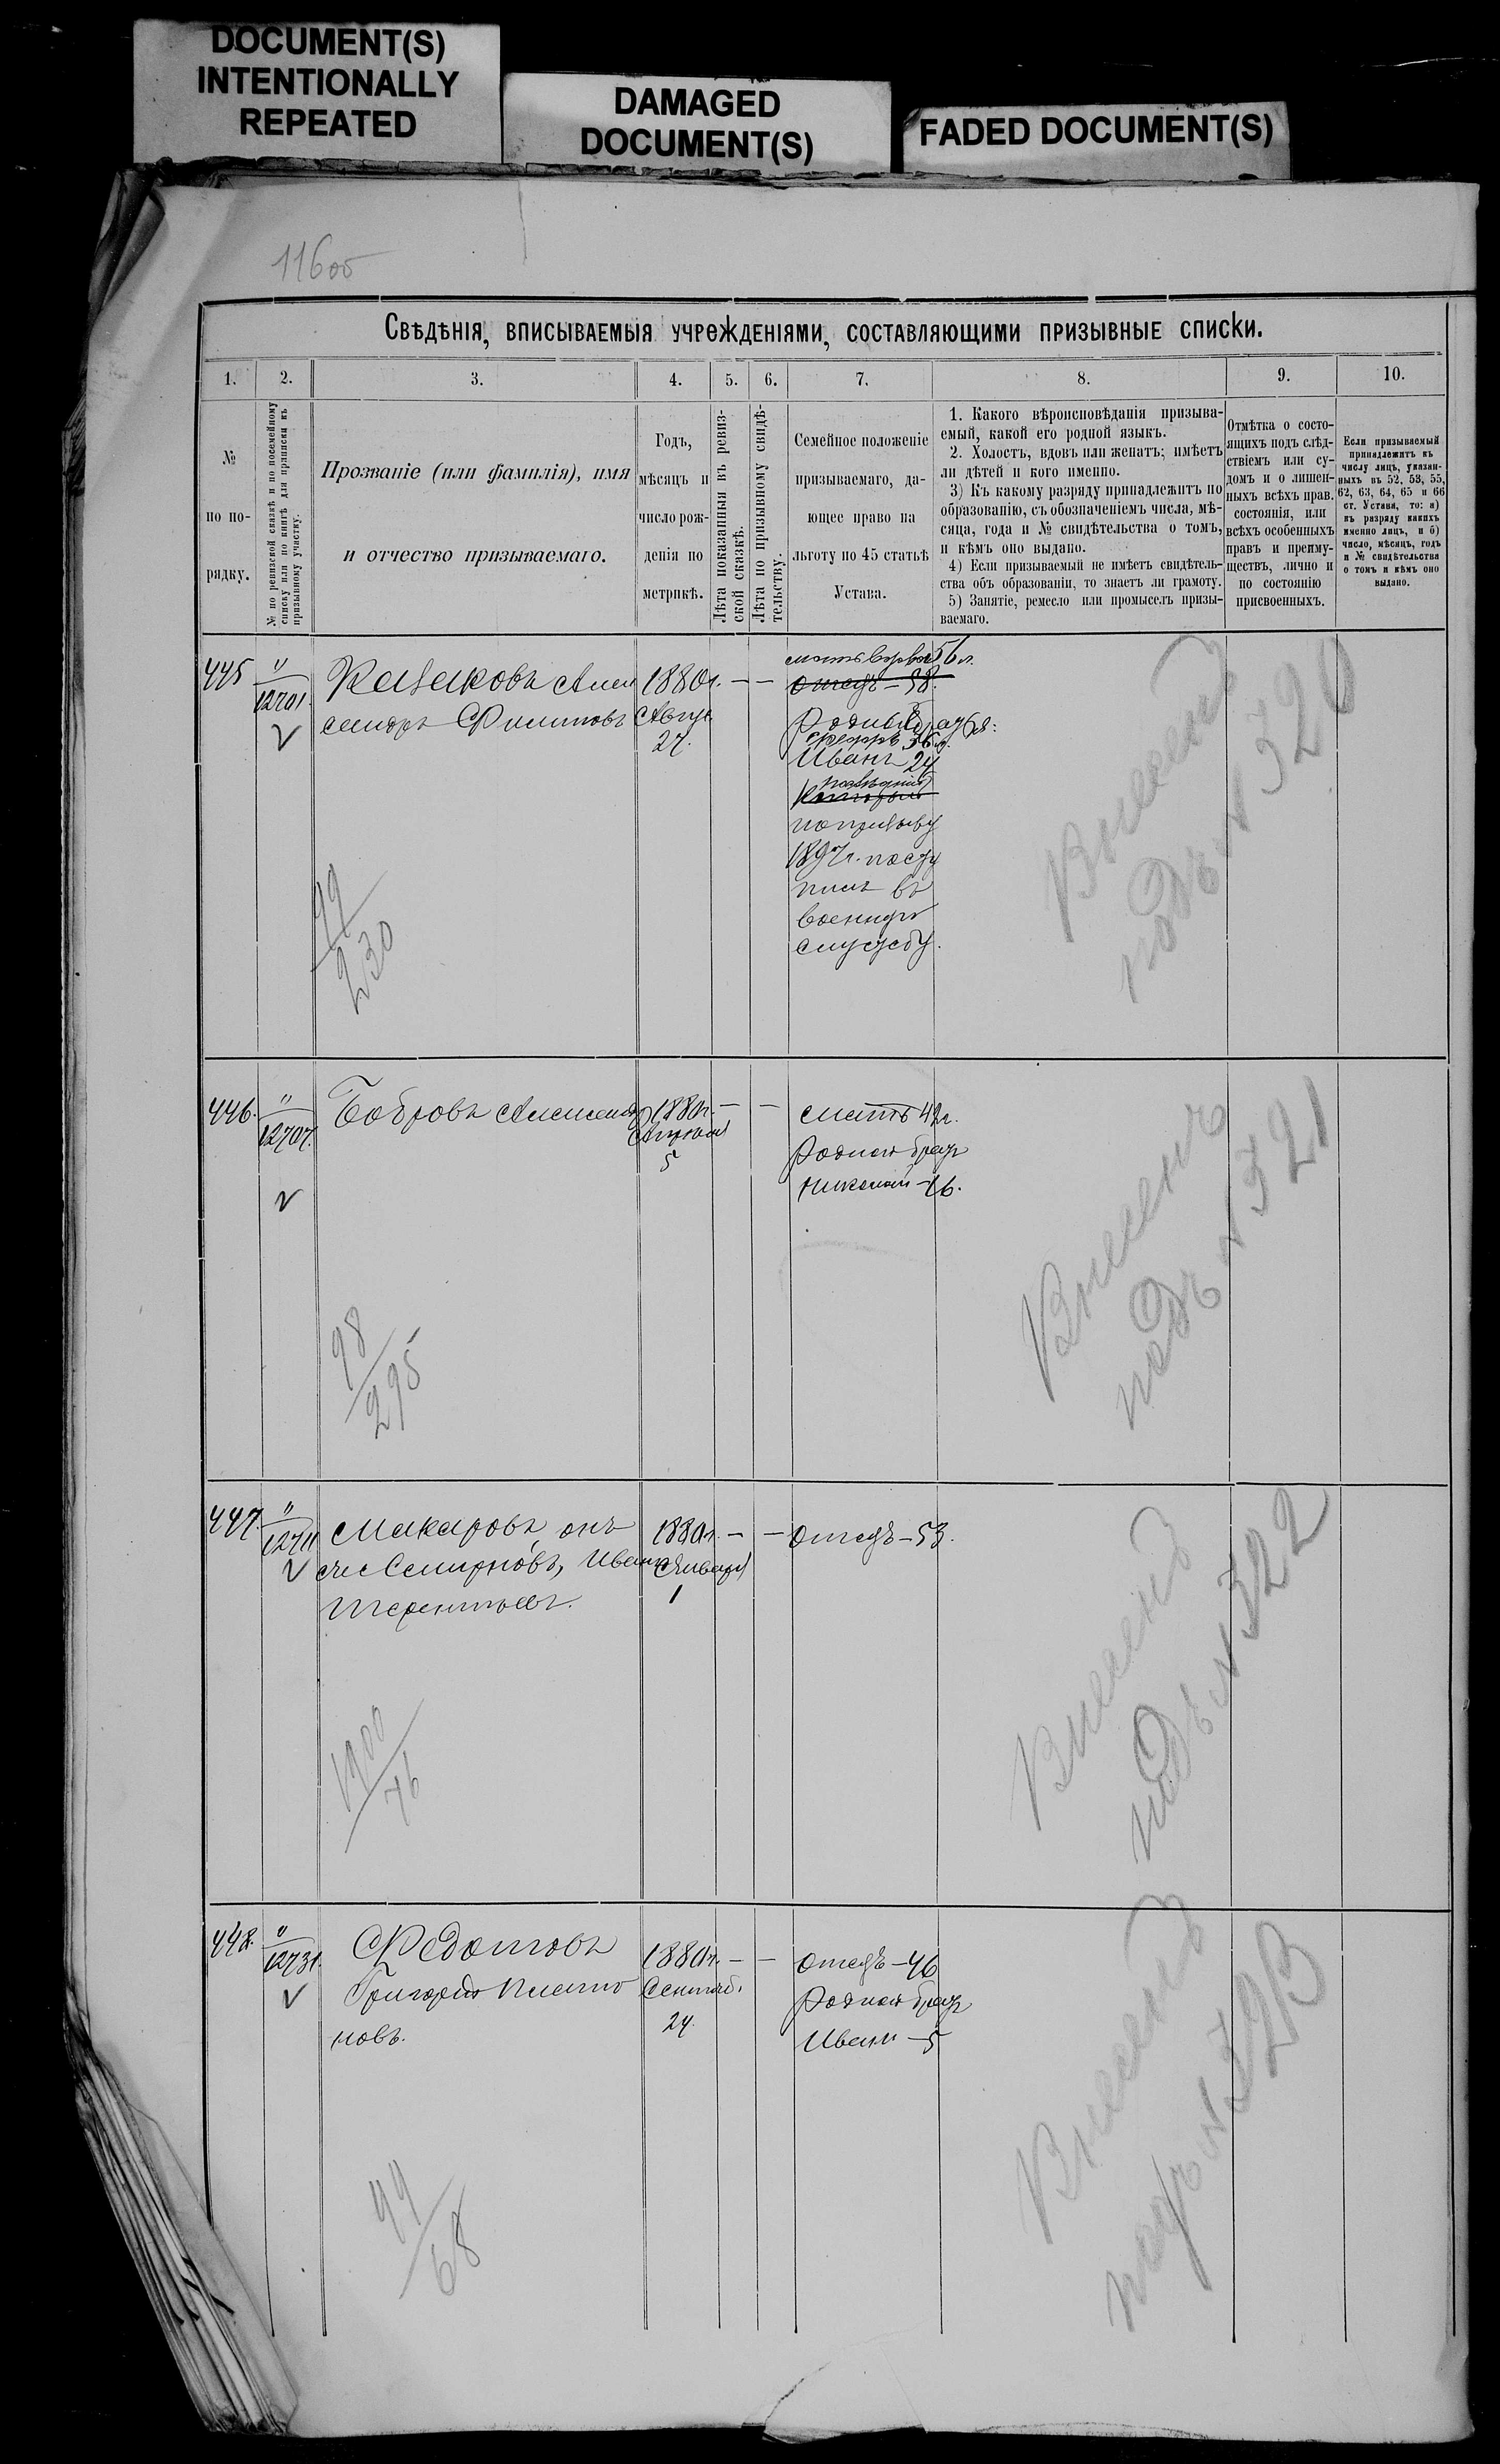 DOCUMENT(S)
INTENTIONALLY
REPEATED
DAMAGED
DOCUMENT(S)
FADED DOCUMENT(S)
116об
Свѣдѣнія, вписываемыя учрежденіями, составляющими призывные списки.
1.
2.
3.
4.
5.
6.
7.
8.
9.
10.
№
по по-
рядку.
№ по ревизской сказкѣ и по посемейному
списку или по книгѣ для приписки къ
призывному участку.
Прозваніе (или фамилія), имя
и отчество призываемаго.
Годъ,
мѣсяцъ и
число рож-
денія по
метрикѣ.
Лѣта показанныя въ ревиз-
ской сказкѣ.
Лѣта по призывному свидѣ-
тельству.
Семейное положеніе
призываемаго, да-
ющее право на
льготу по 45 статьѣ
Устава.
1. Какого вѣроисповѣданія призыва-
емый, какой его родной языкъ.
2. Холостъ, вдовъ или женатъ; имѣетъ
ли дѣтей и кого именно.
3) Къ какому разряду принадлежитъ по
образованію, съ обозначеніемъ числа, мѣ-
сяца, года и № свидѣтельства о томъ,
и кѣмъ оно выдано.
4) Если призываемый не имѣетъ свидѣтель-
ства объ образованіи, то знаетъ ли грамоту.
5) Занятіе, ремесло или промыселъ призы-
ваемаго.
Отмѣтка о состо-
ящихъ подъ слѣд-
ствіемъ или су-
домъ и о лишен-
ныхъ всѣхъ прав.
состоянія, или
всѣхъ особенныхъ
правъ и преиму-
ществъ, лично и
по состоянію
присвоенныхъ.
Если призываемый
принадлежитъ къ
числу лицъ, указан-
ныхъ въ 52, 53, 55,
62, 63, 64, 65 и 66
ст. Устава, то: а)
къ разряду какихъ
именно лицъ, и б)
число, мѣсяцъ, годъ
и № свидѣтельства
о томъ и кѣмъ оно
выдано.
445
"
12701.
Казаковъ Алек
сандръ Филиповъ
1880г.
Август.
27.
— —
мать Варвара 56 л.
отецъ — 58.
Родные братья:
36 л.
Иванъ 24
который
по призыву
1897г. посту
пилъ въ
военную
службу.
Внесенъ
подъ № 320
99
230
446.
"
12707.
Бобровъ Александр
1880г.
Апрѣля
5
— —
мать 42г.
родной брат
Николай — 16.
Внесенъ
подъ № 321
98
295
447.
"
12711
Макаровъ, онъ
же Смирновъ, Иванъ
Терентьевъ.
1880г.
Января
1
— —
отецъ — 53.
Внесенъ
подъ № 322
1900
76
448.
"
12731.
Федотовъ
Григорій Плато
новъ.
1880г.
Сентяб.
24.
— —
отецъ — 46
родной брат
Иванъ — 5
Внесенъ
подъ № 323
99
68